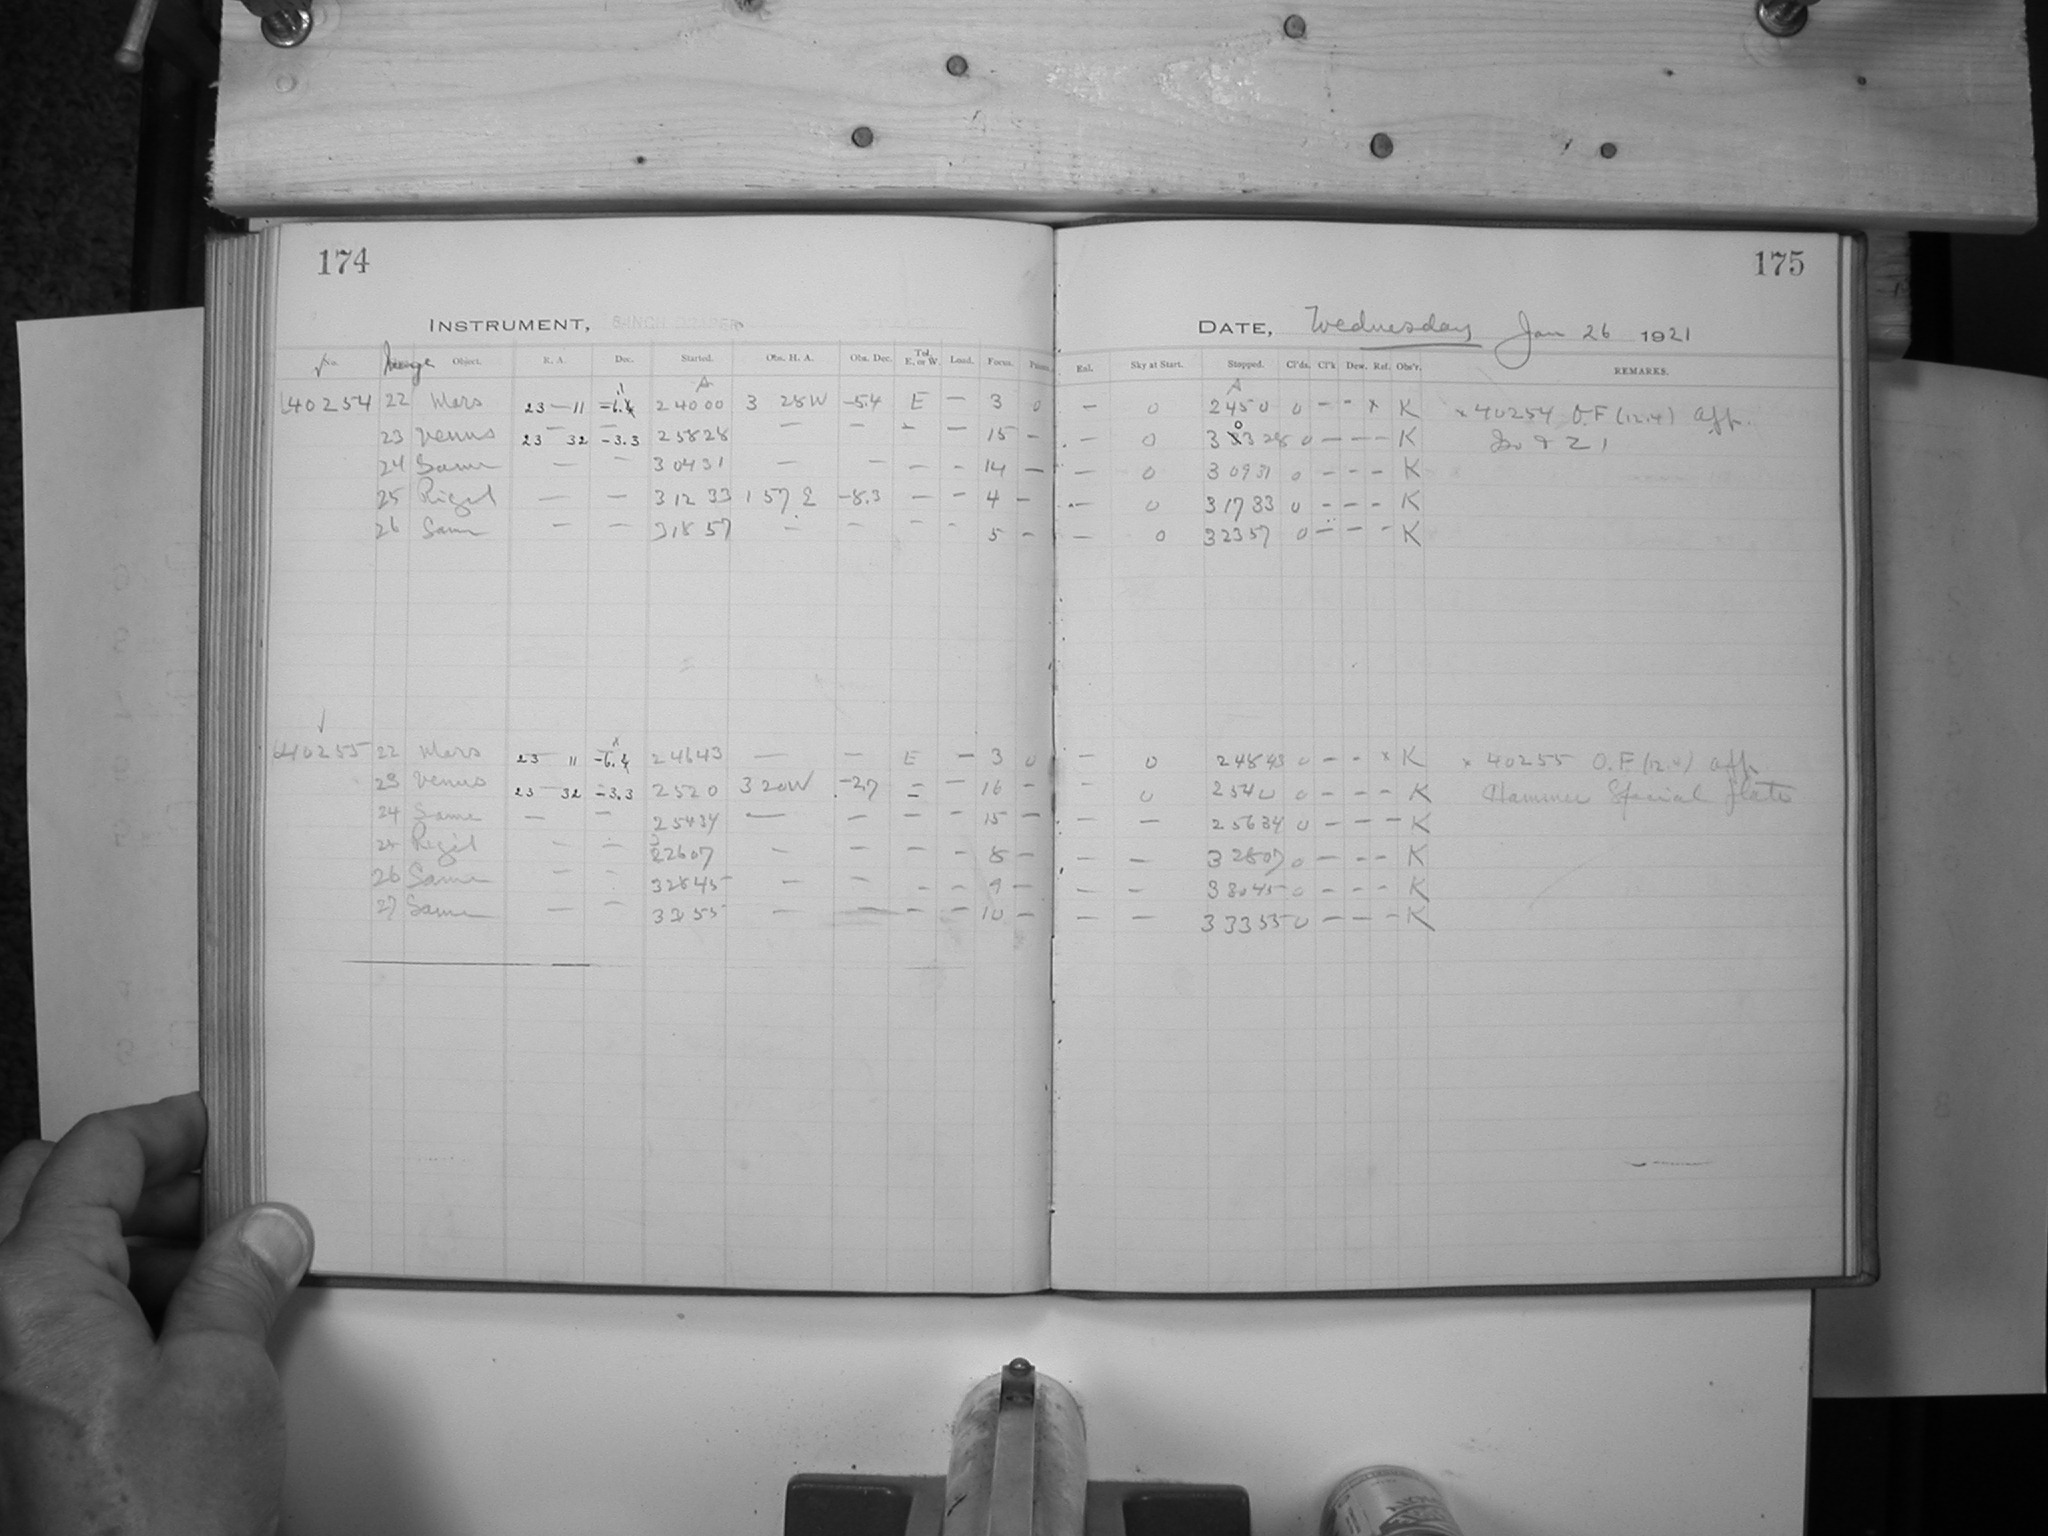 174
175
INSTRUMENT,
DATE, Wednesday Jan 26 1921
No. Image Object. R. A. Dec. Started. Obs. H. A. Obs. Dec. Tel. E. or W. Load. Focus. Enl. Sky at Start. Stopped. Cl'ds. Cl'k Dew. Ref. Obs'r. REMARKS.
A A
40254 22 Mars 23 — 11 24000 3 28W -5.4 E — 3 0 — 0 2450 0 - - x K x 40254 O.F (12.4) aff.
23 Venus 23 32 -3.3 25828 — — - — 15 - - 0 328 0 - - - K
24 Same — — 30431 — — - - 14 — 0 30931 0 - - - K
25 Rigel — — 31233 1 57 E -8.3 — - 4 - - 0 31733 0 - - - K
26 Same - - 31857 - - - - 5 - — 0 32357 0 - - - K
40255 22 Mars 23 11 24643 — — E — 3 0 - 0 24843 0 - - x K x 40255 O.F. (12.4) aff
23 Venus 23 32 -3.3 2520 3 20W -2.7 - — 16 - - 0 2540 0 - - - K Hammer Special plate
24 Same — — 25434 — — - - 15 - - — 25634 0 - - - K
Rigel - - 2607 - - - - 8 - - — 32807 0 - - - K
26 Same - - 32845 - - - - 9 - - — 33045 0 - - - K
27 Same — - — — - - 10 - - — 33355 0 - - - K